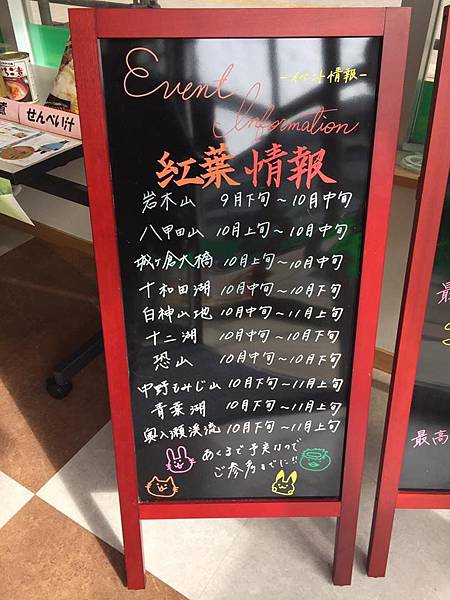 Event
Information
－イベント情報－
紅葉情報
岩木山 9月下旬～10月中旬
八甲田山 10月上旬～10月中旬
城ヶ倉大橋 10月上旬～10月中旬
十和田湖 10月中旬～10月下旬
白神山地 10月中旬～11月上旬
十二湖 10月中旬～10月下旬
恐山 10月中旬～10月下旬
中野もみじ山 10月下旬～11月上旬
青葉湖 10月下旬～11月上旬
奥入瀬渓流 10月下旬～11月上旬
あくまで予想なので
ご参考までに!!
せんべい汁
最高